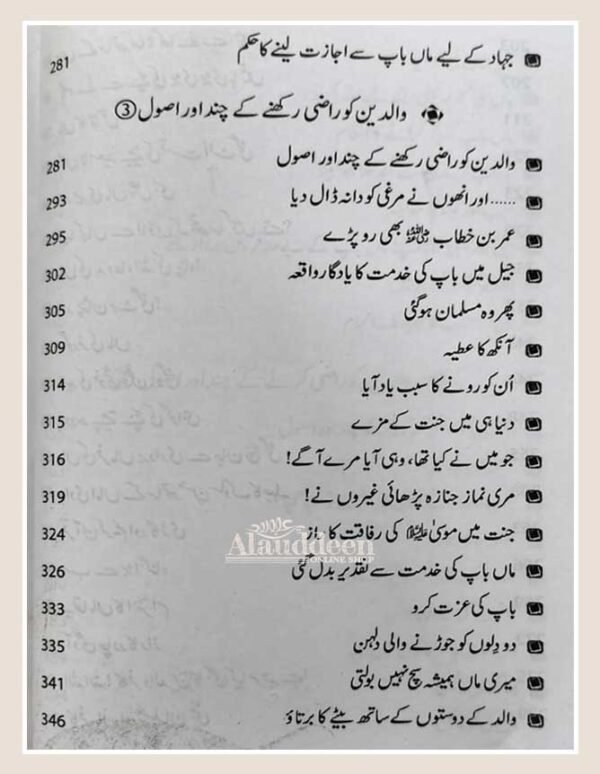 جہاد کے لیے ماں باپ سے اجازت لینے کا حکم 281
والدین کو راضی رکھنے کے چند اور اصول ③
والدین کو راضی رکھنے کے چند اور اصول 281
......اور انھوں نے مرغی کو دانہ ڈال دیا 293
عمر بن خطاب رضی اللہ عنہ بھی رو پڑے 295
جیل میں باپ کی خدمت کا یادگار واقعہ 302
پھر وہ مسلمان ہوگئی 305
آنکھ کا عطیہ 309
اُن کو رونے کا سبب یاد آیا 314
دنیا ہی میں جنت کے مزے 315
جو میں نے کیا تھا، وہی آیا مرے آگے! 316
مری نماز جنازہ پڑھائی غیروں نے! 319
جنت میں موسیٰ علیہ السلام کی رفاقت کا راز 324
علاءالدین
Alauddeen
ONLINE SHOP
ماں باپ کی خدمت سے تقدیر بدل گئی 326
باپ کی عزت کرو 333
دو دِلوں کو جوڑنے والی دلہن 335
میری ماں ہمیشہ سچ نہیں بولتی 341
والد کے دوستوں کے ساتھ بیٹے کا برتاؤ 346